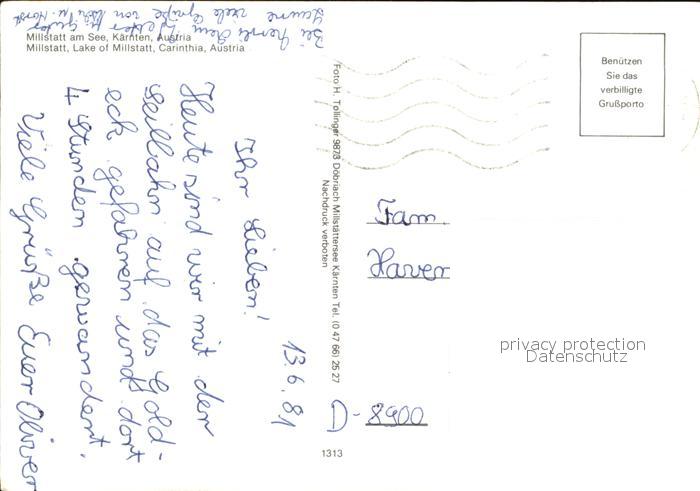 Millstatt am See, Kärnten, Austria
Millstatt, Lake of Millstatt, Carinthia, Austria
13.6.81
Ihr Lieben!
Heute sind wir mit der
Seilbahn auf das Gold-
eck gefahren und dort
4 Stunden gewandert.
Viele Grüße Euer Oliver
Bei herrlichem Wetter u. guter
Laune viele Grüße von u. Horst
Foto H. Tollinger 9873 Döbriach Millstättersee Kärnten Tel. (0 47 66) 25 27
Nachdruck verboten
Benützen
Sie das
verbilligte
Grußporto
Fam.
Haver
D-8900
1313
privacy protection
Datenschutz